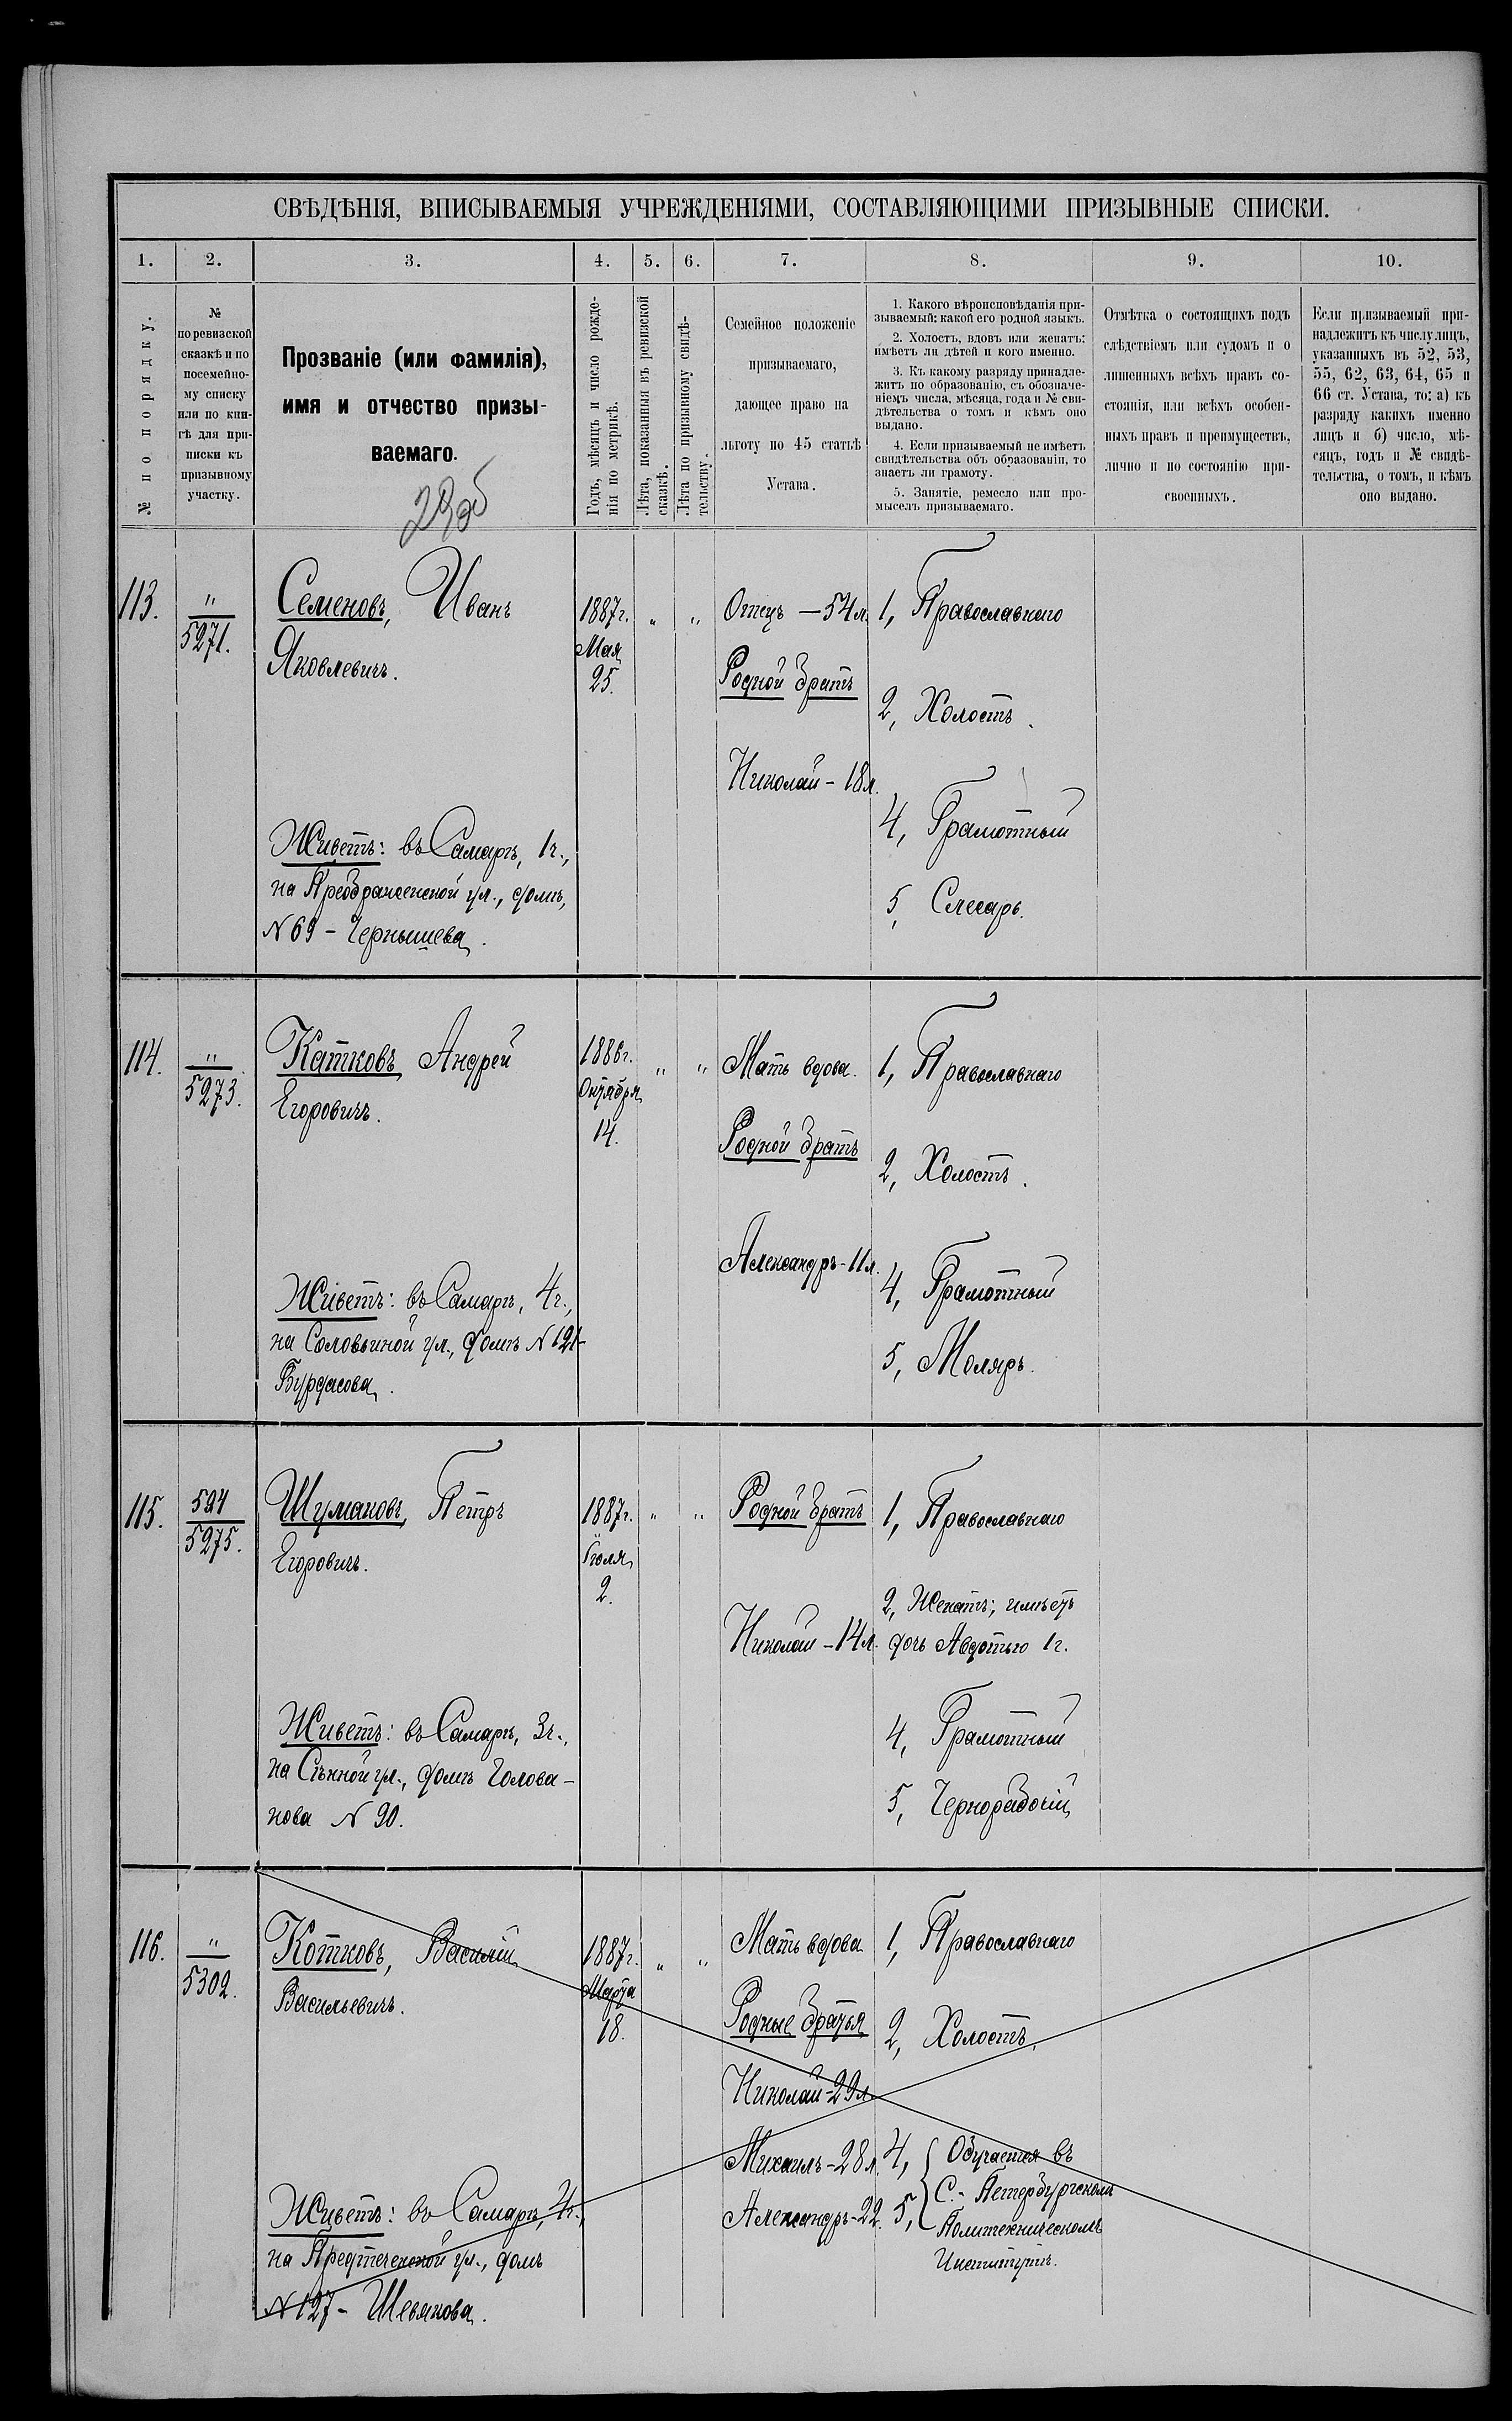 СВѢДѢНІЯ, ВПИСЫВАЕМЫЯ УЧРЕЖДЕНІЯМИ, СОСТАВЛЯЮЩИМИ ПРИЗЫВНЫЕ СПИСКИ.
1. 2. 3. 4. 5. 6. 7. 8. 9. 10.
№ по порядку.
№
по ревизской
сказкѣ и по
посемейно-
му списку
или по кни-
гѣ для при-
писки къ
призывному
участку.
Прозваніе (или фамилія),
имя и отчество призы-
ваемаго.
Годъ, мѣсяцъ и число рожде-
нія по метрикѣ.
Лѣта, показанныя въ ревизской
сказкѣ.
Лѣта по призывному свидѣ-
тельству.
Семейное положеніе
призываемаго,
дающее право на
льготу по 45 статьѣ
Устава.
1. Какого вѣроисповѣданія при-
зываемый: какой его родной языкъ.
2. Холостъ, вдовъ или женатъ:
имѣетъ ли дѣтей и кого именно.
3. Къ какому разряду принадле-
житъ по образованію, съ обозначе-
ніемъ числа, мѣсяца, года и № сви-
дѣтельства о томъ и кѣмъ оно
выдано.
4. Если призываемый не имѣетъ
свидѣтельства объ образованіи, то
знаетъ ли грамоту.
5. Занятіе, ремесло или про-
мыселъ призываемаго.
Отмѣтка о состоящихъ подъ
слѣдствіемъ или судомъ и о
лишенныхъ всѣхъ правъ со-
стоянія, или всѣхъ особен-
ныхъ правъ и преимуществъ,
лично и по состоянію при-
своенныхъ.
Если призываемый при-
надлежитъ къ числу лицъ,
указанныхъ въ 52, 53,
55, 62, 63, 64, 65 и
66 ст. Устава, то: а) къ
разряду какихъ именно
лицъ и б) число, мѣ-
сяцъ, годъ и № свидѣ-
тельства, о томъ, и кѣмъ
оно выдано.
113.
"
5271.
Семеновъ, Иванъ
Яковлевичъ.
Живетъ: въ Самарѣ, 1 ч.,
на Преображенской ул., домъ,
N 69 – Чернышева.
1887 г.
Мая
25.
" "
Отецъ – 54 л.
Родной братъ
Николай – 18 л.
1, Православнаго
2, Холостъ.
4, Грамотный
5, Слесарь.
114.
"
5273.
Катковъ, Андрей
Егоровичъ.
Живетъ: въ Самарѣ, 4 ч.,
на Соловьиной ул., домъ N 121–
Бурдасова.
1886 г.
Октября
14.
" "
Мать вдова.
Родной братъ
Александръ – 11 л.
1, Православнаго
2, Холостъ.
4, Грамотный
5, Маляръ.
115.
594
5275.
Шумаковъ, Петръ
Егоровичъ.
Живетъ: въ Самарѣ, 3 ч.,
на Сѣнной ул., домъ Голова-
нова N 90.
1887 г.
Іюля
2.
" "
Родной братъ
Николай – 14 л.
1, Православнаго
2, Женатъ; имѣетъ
дочь Авдотью 1 г.
4, Грамотный
5, Чернорабочій
116.
"
5302.
Котковъ, Василій
Васильевичъ.
Живетъ: въ Самарѣ, 4 ч.,
на Предтеченской ул., домъ
N 127 – Шевякова.
1887 г.
Марта
18.
" "
Мать вдова
Родные братья
Николай – 29 л.
Михаилъ – 28 л.
Александръ – 22.
1, Православнаго
2, Холостъ.
4, Обучается въ
С.-Петербургскомъ
5, Политехническомъ
Институтѣ.